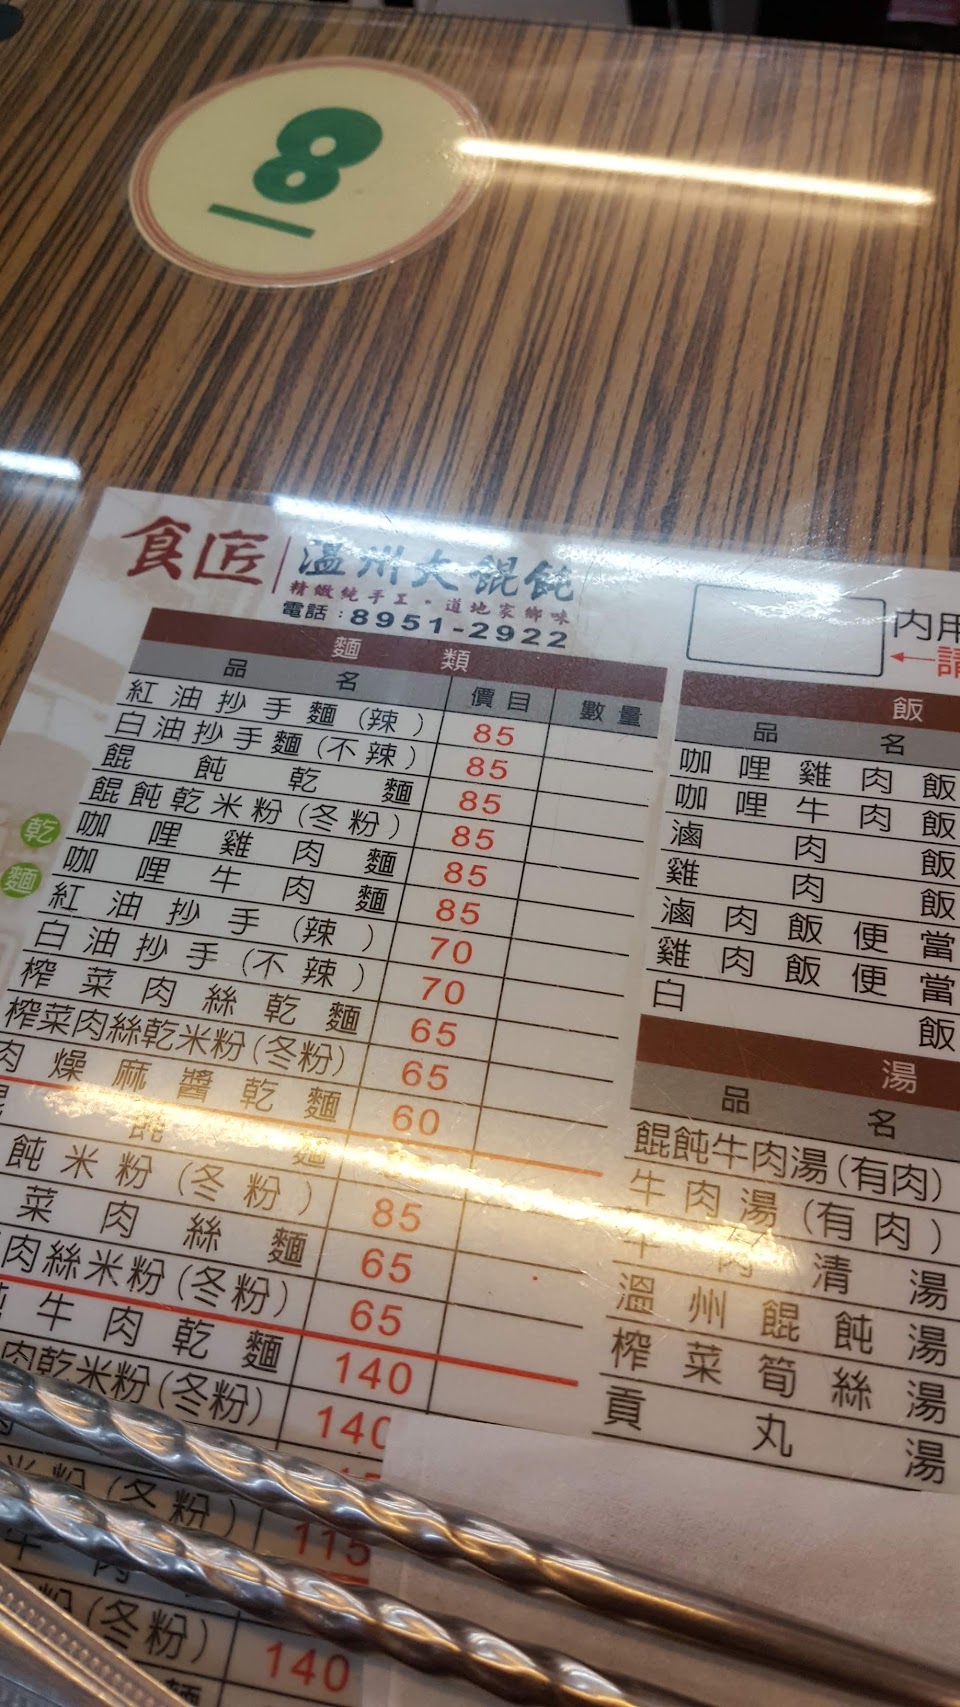 8
食匠 溫州大餛飩
精緻純手工。道地家鄉味
電話:8951-2922
內用
麵類
品名 價目 數量
紅油抄手麵(辣) 85
白油抄手麵(不辣) 85
餛飩乾麵 85
餛飩乾米粉(冬粉) 85
咖哩雞肉麵 85
咖哩牛肉麵 85
紅油抄手(辣) 70
白油抄手(不辣) 70
榨菜肉絲乾麵 65
榨菜肉絲乾米粉(冬粉) 65
肉燥麻醬乾麵 60
飩麵
飩米粉(冬粉) 85
菜肉絲麵 65
肉絲米粉(冬粉) 65
牛肉乾麵 140
肉乾米粉(冬粉) 140
米粉(冬粉) 115
牛肉
(冬粉) 140
乾
麵
飯
品名
咖哩雞肉飯
咖哩牛肉飯
滷肉飯
雞肉飯
滷肉飯便當
雞肉飯便當
白飯
湯
品名
餛飩牛肉湯(有肉)
牛肉湯(有肉)
牛肉清湯
溫州餛飩湯
榨菜筍絲湯
貢丸湯